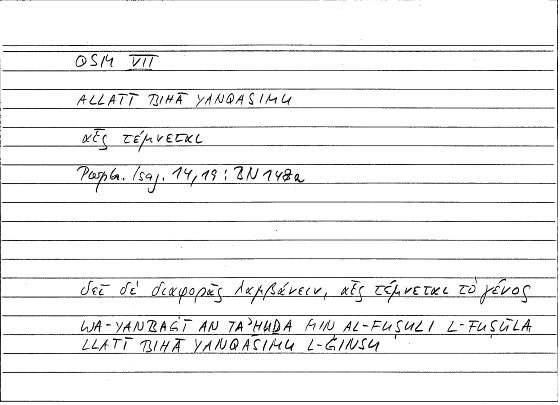 QSM VII
ALLATĪ BIHĀ YANQASIMU
αἷς τέμνεται
Porph. Isag. 14,19: BN 148a
δεῖ δὲ διαφορὰς λαμβάνειν, αἷς τέμνεται τὸ γένος
WA-YANBAĠĪ AN TAʾḪUḎA MIN AL-FUṢŪLI L-FUṢŪLA
LLATĪ BIHĀ YANQASIMU L-ǦINSU